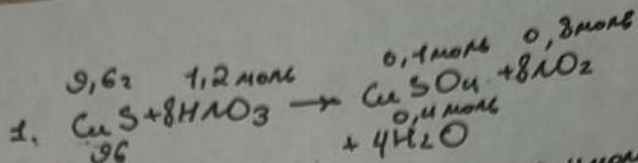 9,6г 1,2моль 0,1моль 0,8моль
1. CuS+8HNO3 → CuSO4 +8NO2
96 0,4моль
+ 4H2O